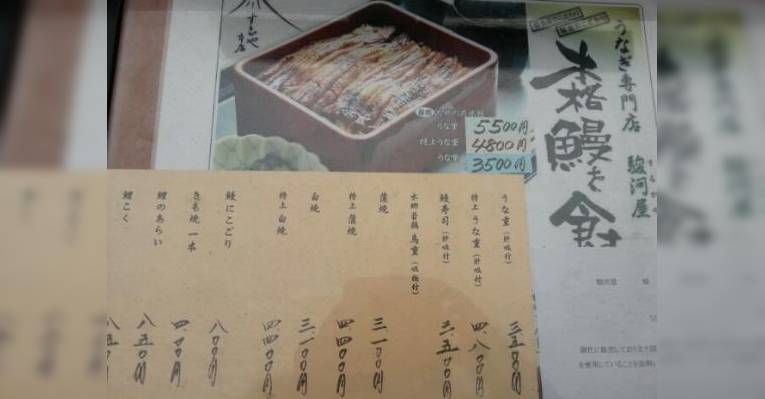 するがや
本店
うなぎ専門店
駿河屋
するがや
本格鰻を食
うな重
特上うな重
うな重
5500円
4800円
3500円
うな重(肝吸付)
三、五〇〇円
特上うな重(肝吸付)
四、八〇〇円
鰻寿司(肝吸付)
二、五〇〇円
水郷若鶏鳥重(吸物付)
蒲焼
三、一〇〇円
特上蒲焼
四、四〇〇円
白焼
三、一〇〇円
特上白焼
四、四〇〇円
鰻にこごり
八〇〇円
きも焼一本
四〇〇円
鯉のあらい
八五〇円
鯉こく
八五〇円
駿河屋